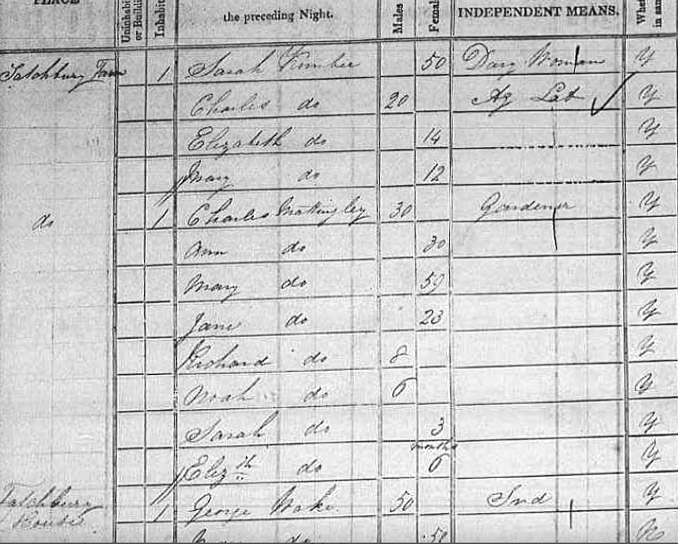 PLACE
Uninhabited or Building
Inhabited
the preceding Night.
Males
Females
INDEPENDENT MEANS.
Whe in sam
Tatchbury Farm 1 Sarah Kimber 50 Dary Woman Y
Charles do 20 Ag Lab Y
Elizabeth do 14 Y
Mary do 12 Y
do 1 Charles Matingley 30 Gardener Y
Ann do 30 Y
Mary do 59 Y
Jane do 23 Y
Richard do 8 Y
Noah do 6 Y
Sarah do 3 Y
Elizth do months 6 Y
Tatchbury House 1 George Wake 50 Ind Y
do 50 N